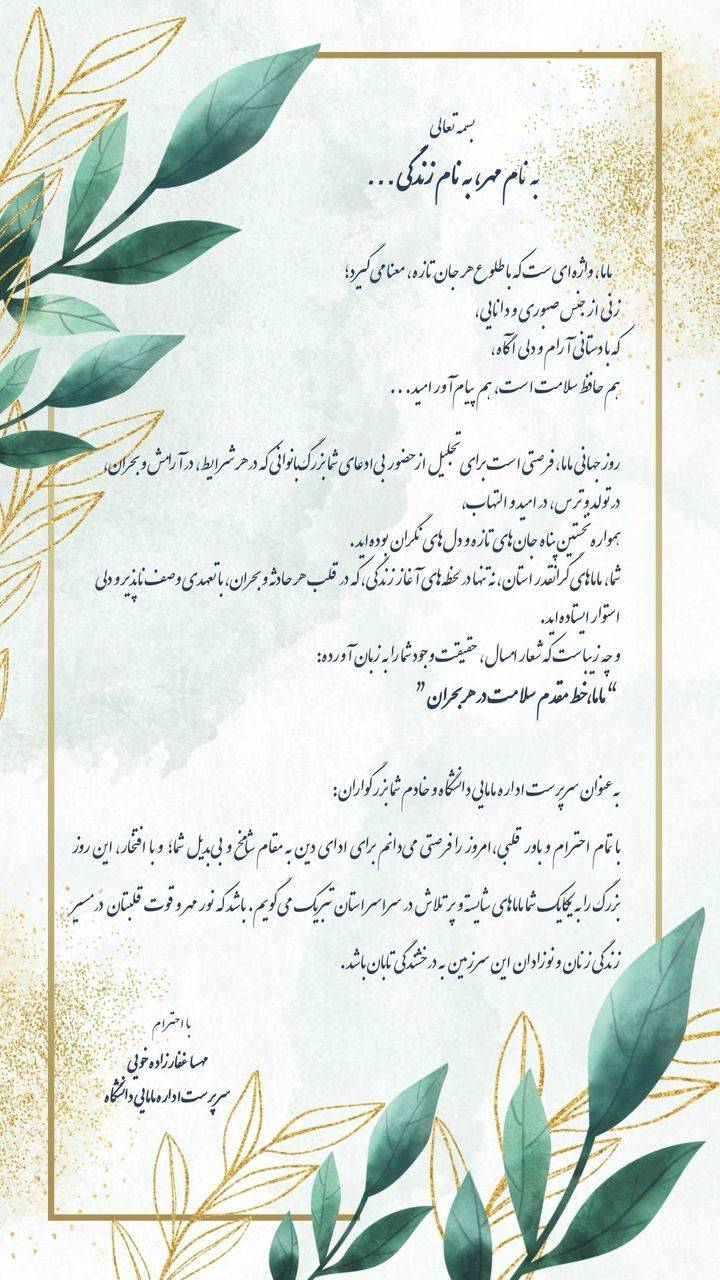 بسمه تعالی
به نام مهر، به نام زندگی...
ماما، واژه‌ای ست که با طلوع هر جان تازه، معنا می‌گیرد؛
زنی از جنس صبوری و دانایی،
که با دستانی آرام و دلی آگاه،
هم حافظ سلامت است، هم پیام‌آور امید...
روز جهانی ماما، فرصتی است برای تجلیل از حضور بی‌ادعای شما بزرگ‌بانوانی که در هر شرایط، در آرامش و بحران،
در تولد و ترس، در امید و التهاب،
همواره نخستین پناه جان‌های تازه و دل‌های نگران بوده‌اید.
شما، ماماهای گرانقدر استان، نه تنها در لحظه‌های آغاز زندگی، که در قلب هر حادثه و بحران، با تعهدی وصف ناپذیر و دلی
استوار ایستاده‌اید.
و چه زیباست که شعار امسال، حقیقت وجود شما را به زبان آورده:
“ماما، خط مقدم سلامت در هر بحران”
به عنوان سرپرست اداره مامایی دانشگاه و خادم شما بزرگواران:
با تمام احترام و باور قلبی، امروز را فرصتی می‌دانم برای ادای دین به مقام شامخ و بی‌بدیل شما؛ و با افتخار، این روز
بزرگ را به یکایک شما ماماهای شایسته و پر تلاش در سراسر استان تبریک می‌گویم. باشد که نور مهر و قوت قلبتان در مسیر
زندگی زنان و نوزادان این سرزمین به درخشندگی تابان باشد.
با احترام
مهسا غفارزاده خویی
سرپرست اداره مامایی دانشگاه